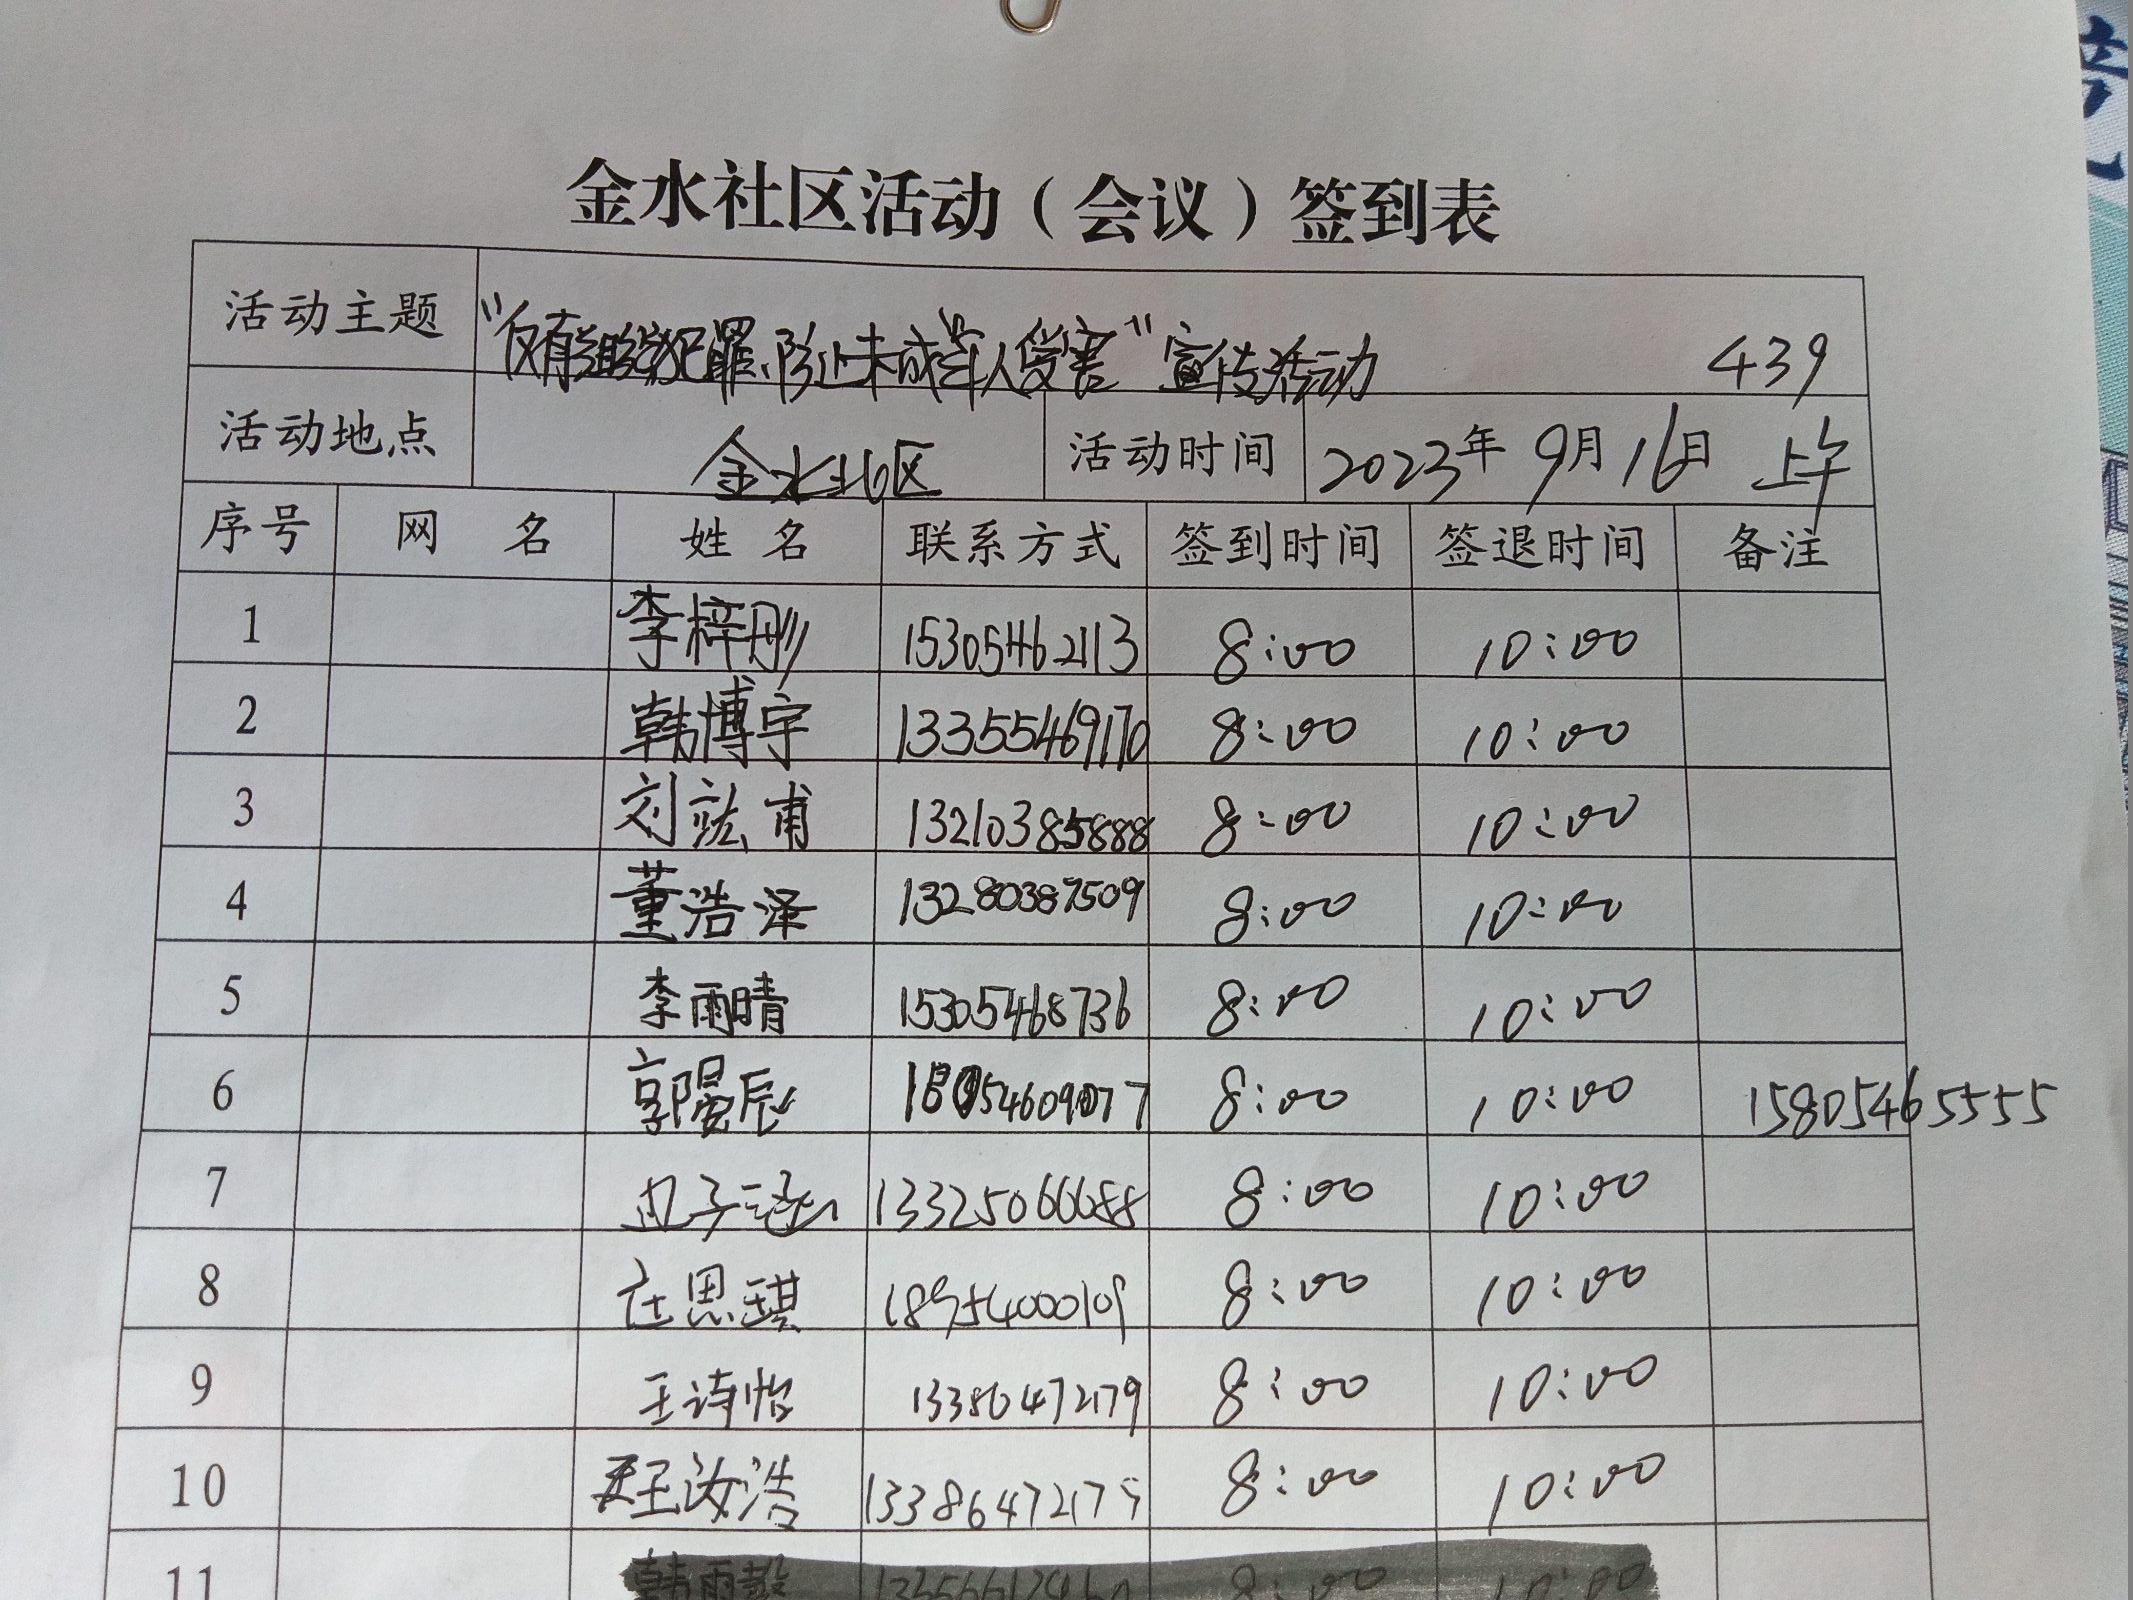 金水社区活动（会议）签到表
活动主题 “反有组织犯罪、防止未成年人受害”宣传活动 439
活动地点 金水北区 活动时间 2023年 9月16日 上午
序号 网 名 姓 名 联系方式 签到时间 签退时间 备注
1 李梓彤 15305462113 8:00 10:00
2 韩博宇 13355469170 8:00 10:00
3 刘竑甫 13210385888 8:00 10:00
4 董浩泽 13280387509 8:00 10:00
5 李雨晴 15305468736 8:00 10:00
6 郭晏辰 8:00 10:00 15805465555
7 子涵 13325066688 8:00 10:00
8 庄思琪 18954000109 8:00 10:00
9 王诗怡 13386472179 8:00 10:00
10 王汝浩 1338647217 8:00 10:00
11 韩雨 8:00 10:00